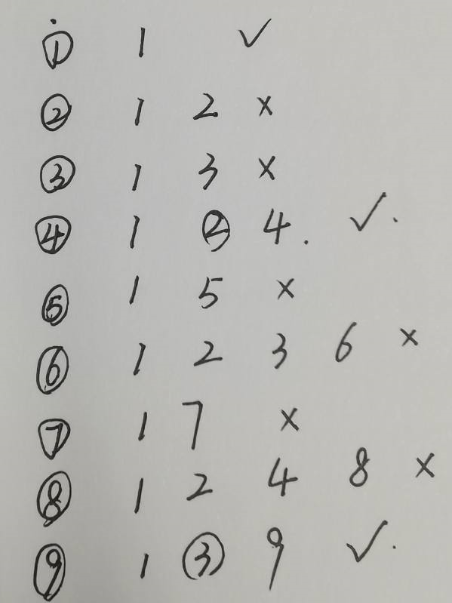 ① 1 ✓
② 1 2 ×
③ 1 3 ×
④ 1 ② 4. ✓.
⑤ 1 5 ×
⑥ 1 2 3 6 ×
⑦ 1 7 ×
⑧ 1 2 4 8 ×
⑨ 1 ③ 9 ✓.